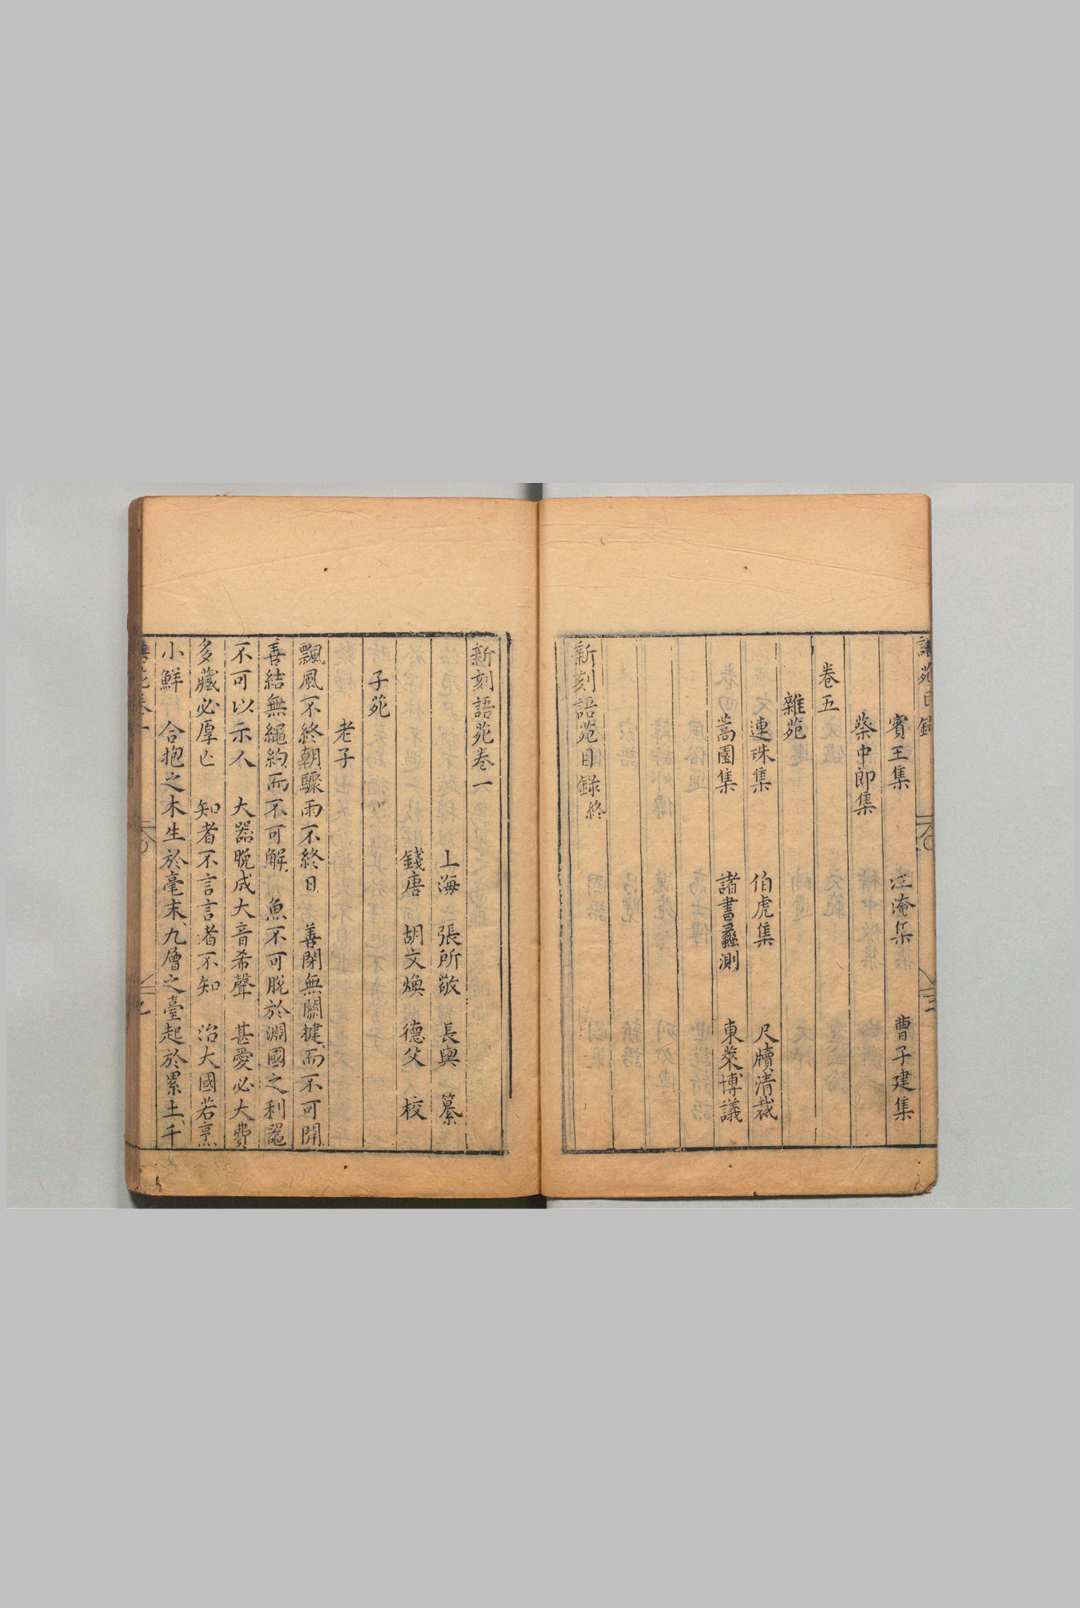 賓王集　江淹集　曹子建集
蔡中郎集
卷五
雜苑
連珠集　伯虎集　尺牘清裁
蒿園集　諸書蠡測　東萊博議
新刻語苑目錄終
新刻語苑卷一
上海　張所敬　長輿　纂
錢唐　胡文煥　德父　校
子苑
老子
飄風不終朝驟雨不終日　善閉無關揵而不可開
善結無繩約而不可解　魚不可脫於淵國之利器
不可以示人　大器晚成大音希聲　甚愛必大費
多藏必厚亡　知者不言言者不知　治大國若烹
小鮮　合抱之木生於毫末九層之臺起於累土千